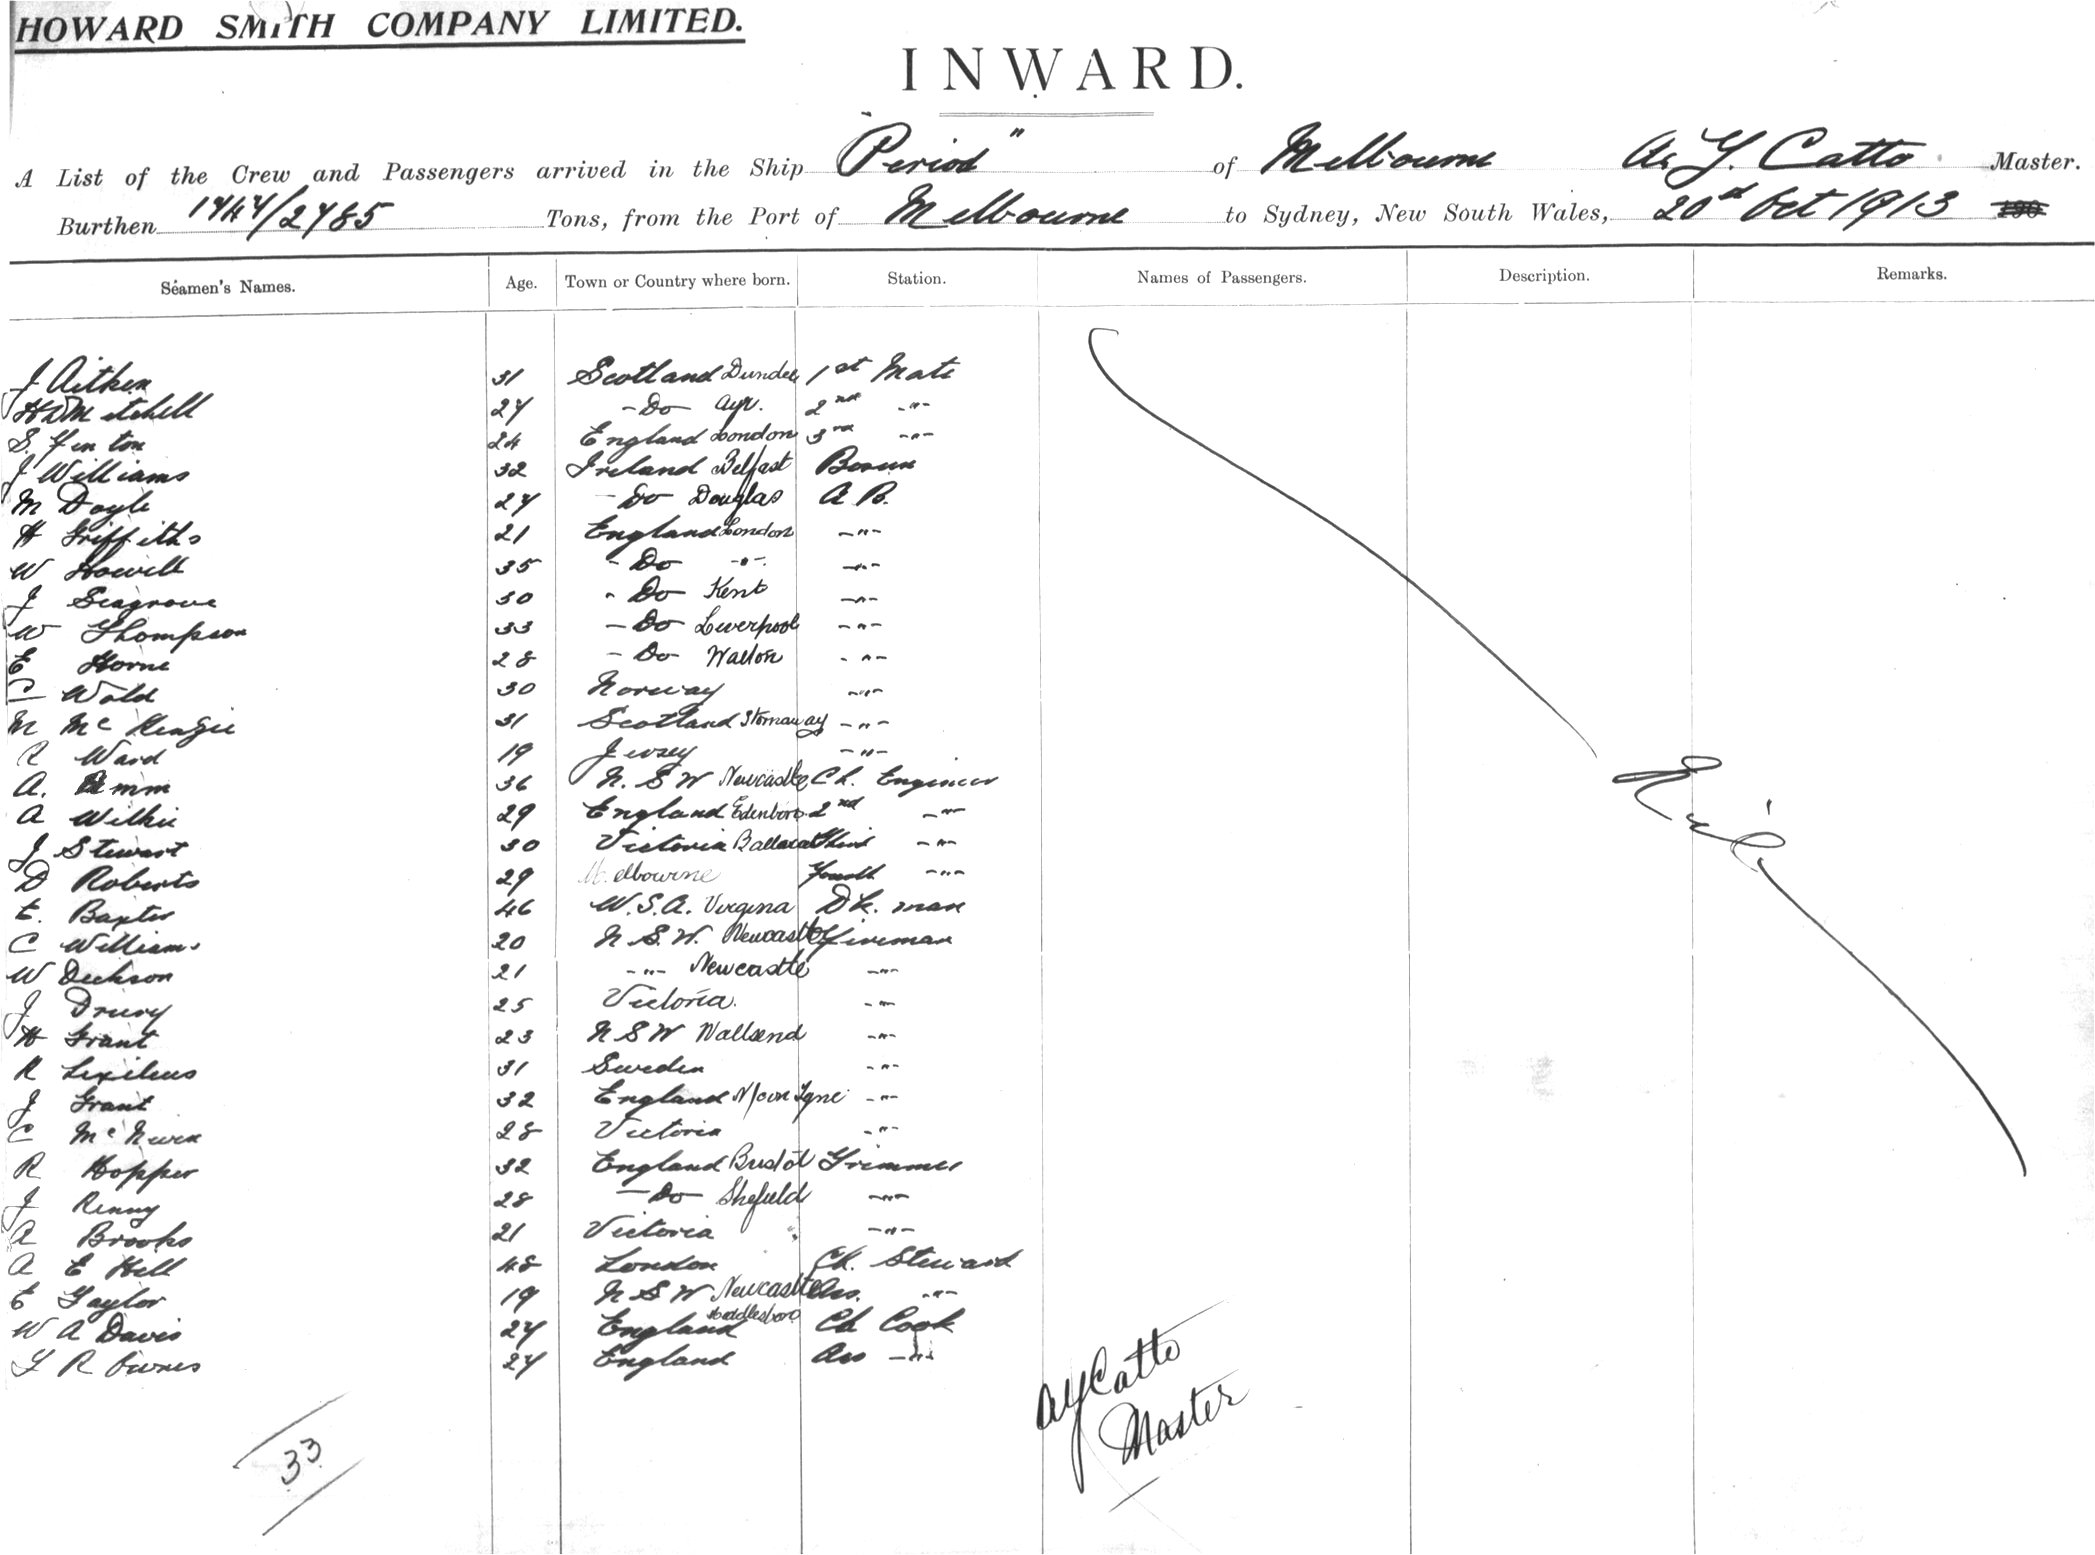 HOWARD SMITH COMPANY LIMITED.
INWARD.
A List of the Crew and Passengers arrived in the Ship "Period" of Melbourne A. Y. Catto Master.
Burthen 1747/2785 Tons, from the Port of Melbourne to Sydney, New South Wales, 20d Oct 1913 190
Seamen's Names. Age. Town or Country where born. Station. Names of Passengers. Description. Remarks.
J Aitken 31 Scotland Dundee 1st Mate
H Mitchell 27 -Do- Ayr. 2nd -"-
S. Finton 24 England London 3rd -"-
J Williams 32 Ireland Belfast Bosun
M Doyle 27 -Do Douglas A B.
H Griffiths 21 England London -"-
W Howell 35 -Do -"-
J Seagrove 30 -Do Kent -"-
W Thompson 33 -Do Liverpool -"-
E Horne 28 -Do- Walton -"-
C Wold 30 Norway -"-
M McKenzie 31 Scotland Stornaway -"-
R Ward 19 Jersey -"-
A. Amm 36 N. S W Newcastle Ch. Engineer
Nil
A Wilkie 29 England Edenboro 2nd -"-
J Stewart 30 Victoria Ballarat Third -"-
D Roberts 29 Melbourne Fourth -"-
E. Baxter 46 U.S.A. Virgina Dk. man
C Williams 20 N S.W. Newcastle Fireman
W Dickson 21 -"- Newcastle -"-
J Drury 25 Victoria. -"-
H Grant 23 N S W Wallsend -"-
R 31 Sweden -"-
J Grant 32 England N/on Tyne -"-
C McNiven 28 Victoria -"-
R Hopper 32 England Bristol Trimmer
J Renny 28 -Do- Shefield -"-
A Brooks 21 Victoria -"-
A E Hill 48 London Ch. Steward
E Taylor 19 N S W Newcastle Ass. -"-
W A Davis 27 England Middlesboro Ch Cook
T R Owens 27 England Ass -"-
AYCatto
Master
33